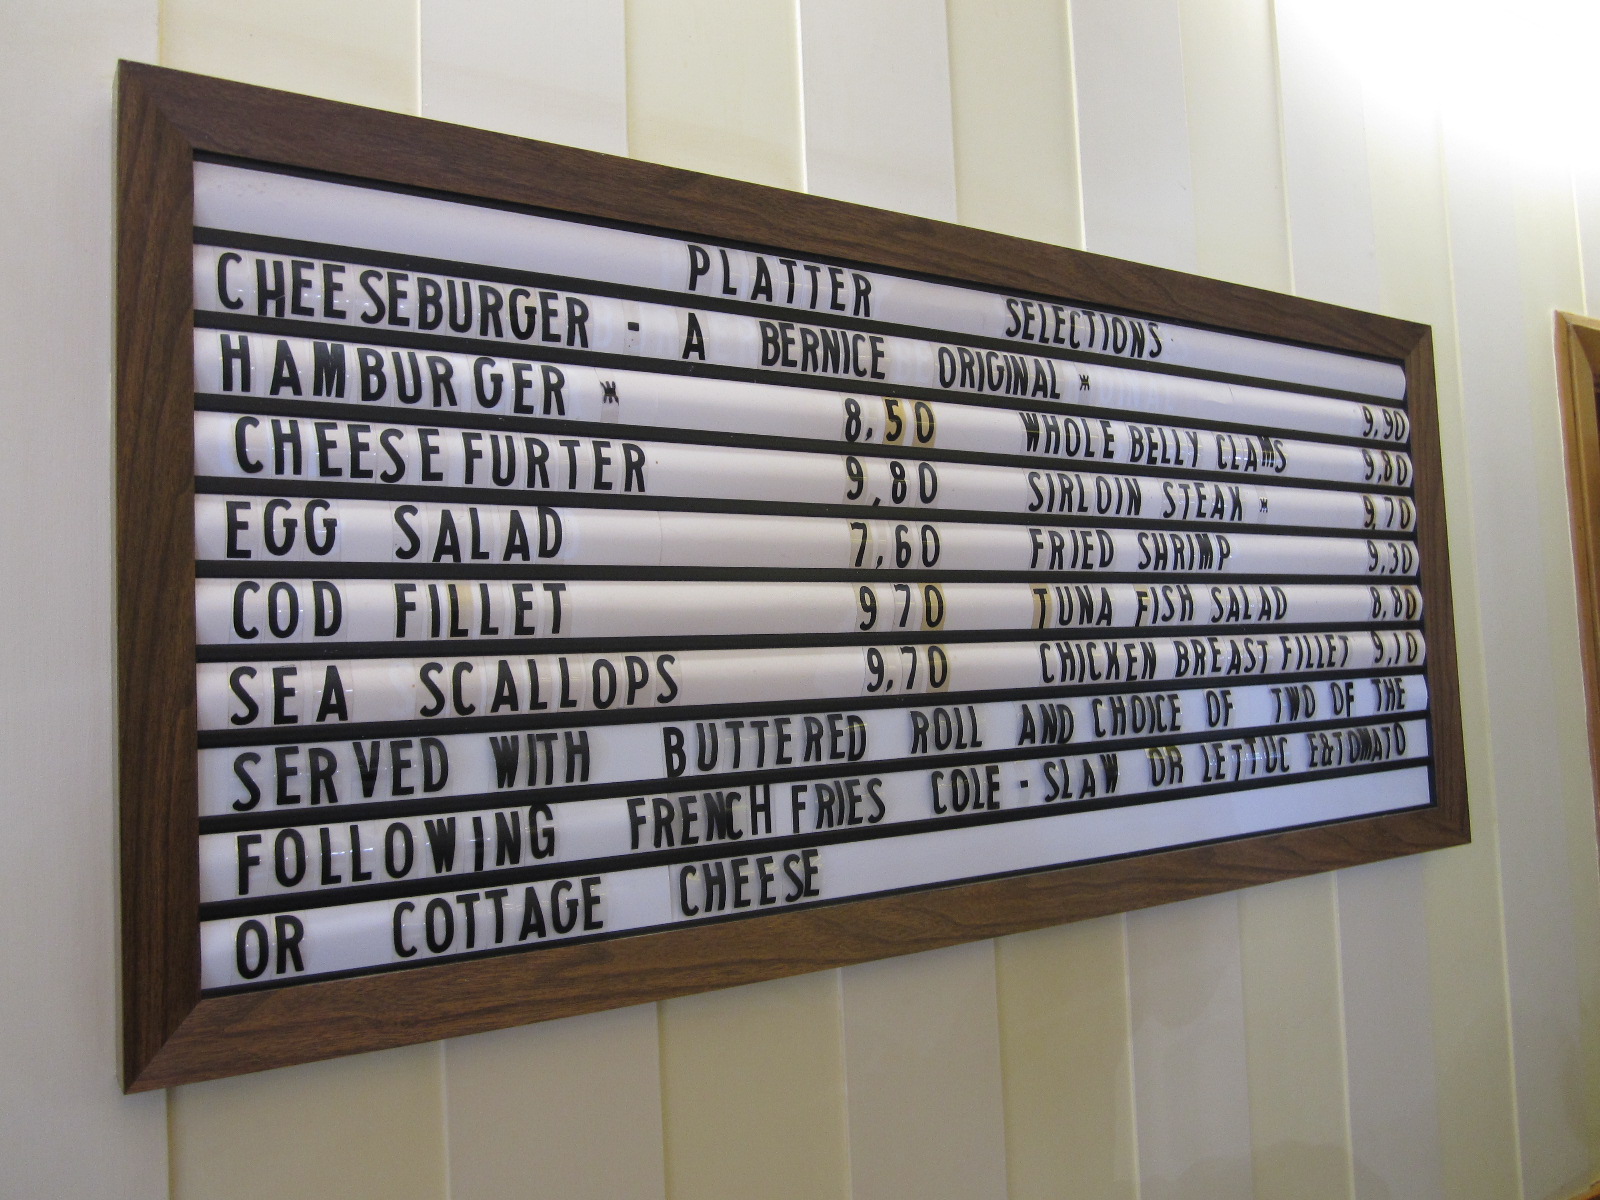 PLATTER SELECTIONS
CHEESEBURGER - A BERNICE ORIGINAL * 9.90
HAMBURGER * 8.50 WHOLE BELLY CLAMS 9.80
CHEESEFURTER 9,80 SIRLOIN STEAK * 9.70
EGG SALAD 7,60 FRIED SHRIMP 9.30
COD FILLET 9 70 TUNA FISH SALAD 8.80
SEA SCALLOPS 9,70 CHICKEN BREAST FILLET 9,10
SERVED WITH BUTTERED ROLL AND CHOICE OF TWO OF THE
FOLLOWING FRENCH FRIES COLE - SLAW OR LETTUC E&TOMATO
OR COTTAGE CHEESE